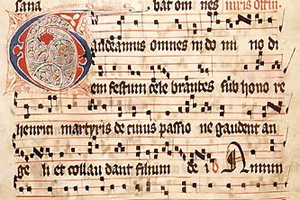 sana . bat om nes
Gaudeamus omnes in do mi no di
em festum cele brantes sub hono re
henrici martyris de cuius passio ne gaudent an
ge li et collau dant filium de i Annun